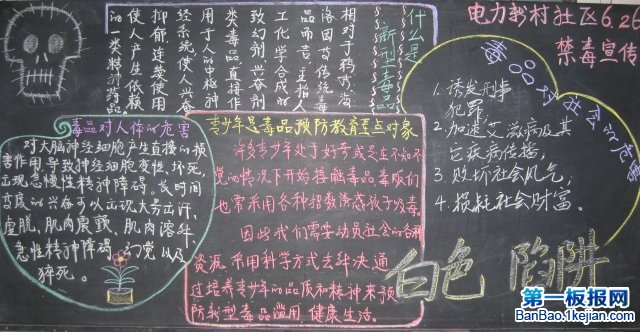 电力新村社区6.26
禁毒宣传
什么是
新型毒品
相对于鸦片、海
洛因等传统毒
品而言,主指人
工化学合成的
致幻剂、兴奋剂
类毒品,直接作
用于人的中枢神
经系统,使人兴奋、
抑郁,连续使用
使人产生依赖
的一类精神药品。
毒品对社会的危害
1.诱发刑事
犯罪;
2.加速艾滋病及其
它疾病传播;
3.败坏社会风气;
4.损耗社会财富。
毒品对人体的危害
对大脑神经细胞产生直接的损
害作用导致神经细胞变性、坏死,
出现急慢性精神障碍。长时间
高度的兴奋可以出现大汗
虚脱、肌肉震颤、肌肉溶斗、
急性精神障碍、幻觉以及
猝死。
青少年是毒品预防教育重点对象
许多青少年处于好奇或是在不知不
觉的情况下开始接触毒品,毒贩们
也常采用各种招数诱惑孩子吸毒。
因此我们需要动员社会的各种
资源,采用科学方式去解决,通
过培养青少年的品质和精神来预
防新型毒品滥用,健康生活。
白色陷阱
第一板报网
BanBao.1kejian.com